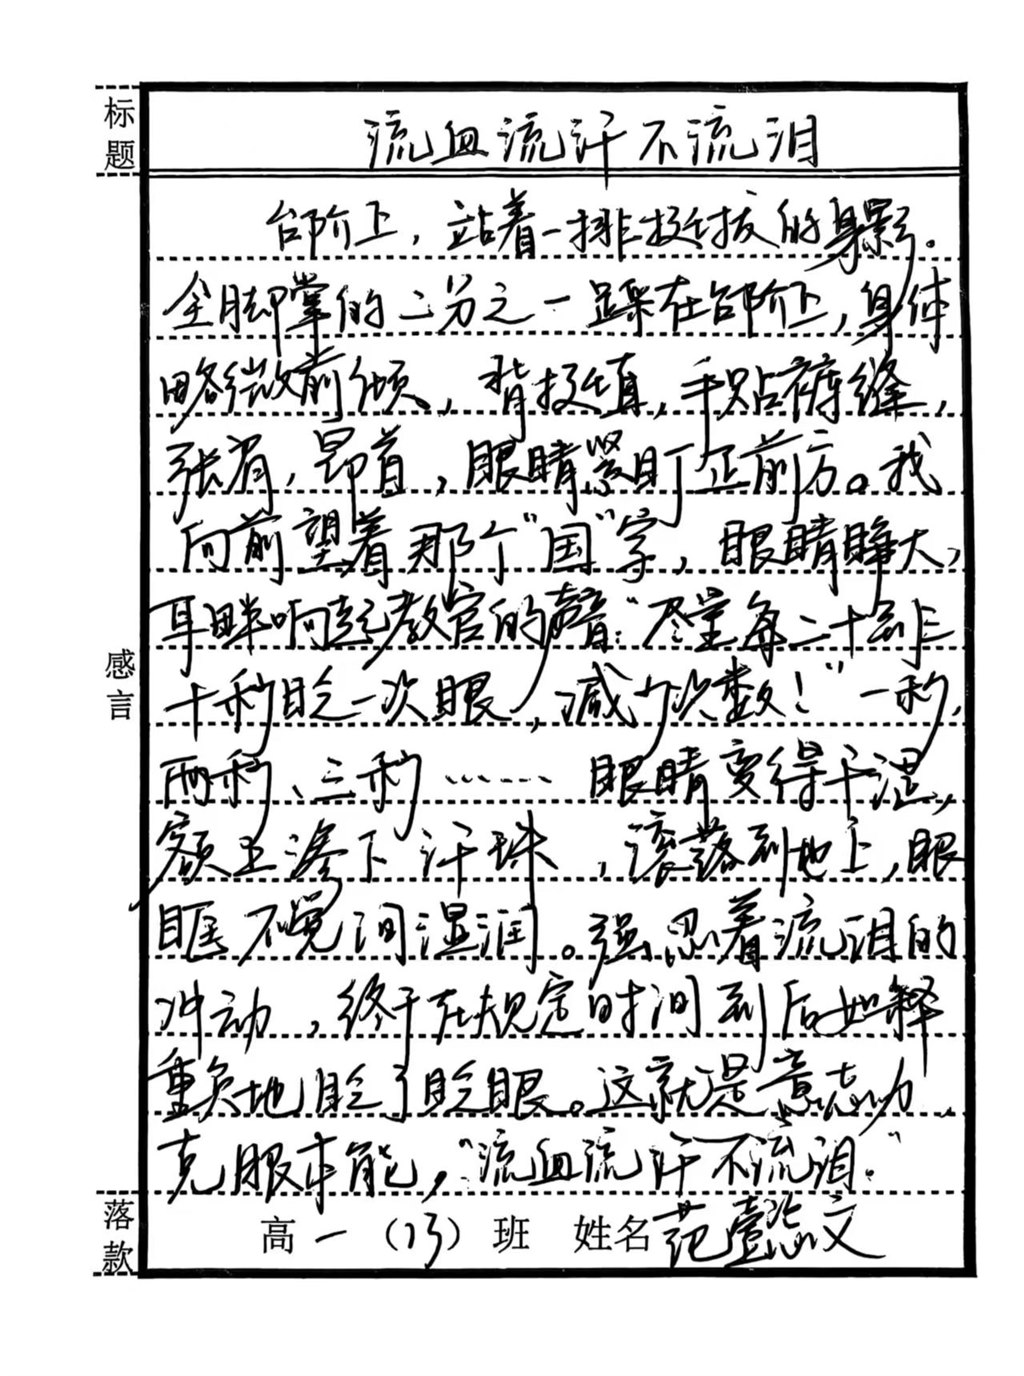 标题
流血流汗不流泪
台阶上，站着一排挺拔的身影。
全脚掌的二分之一踩在台阶上，身体
略微前倾，背挺直，手贴裤缝，
张肩，昂首，眼睛紧盯正前方。我
向前望着那个“国”字，眼睛睁大，
耳畔响起教官的声音：“尽量每二十到三
十秒眨一次眼，减少次数！”一秒，
两秒、三秒……眼睛变得干涩，
额上凑下汗珠，滚落到地上，眼
眶不觉间湿润。强忍着流泪的
冲动，终于在规定时间到后如释
重负地眨了眨眼。这就是意志力，
克服本能，“流血流汗不流泪。”
感言
落款
高一（13）班 姓名 范懿文